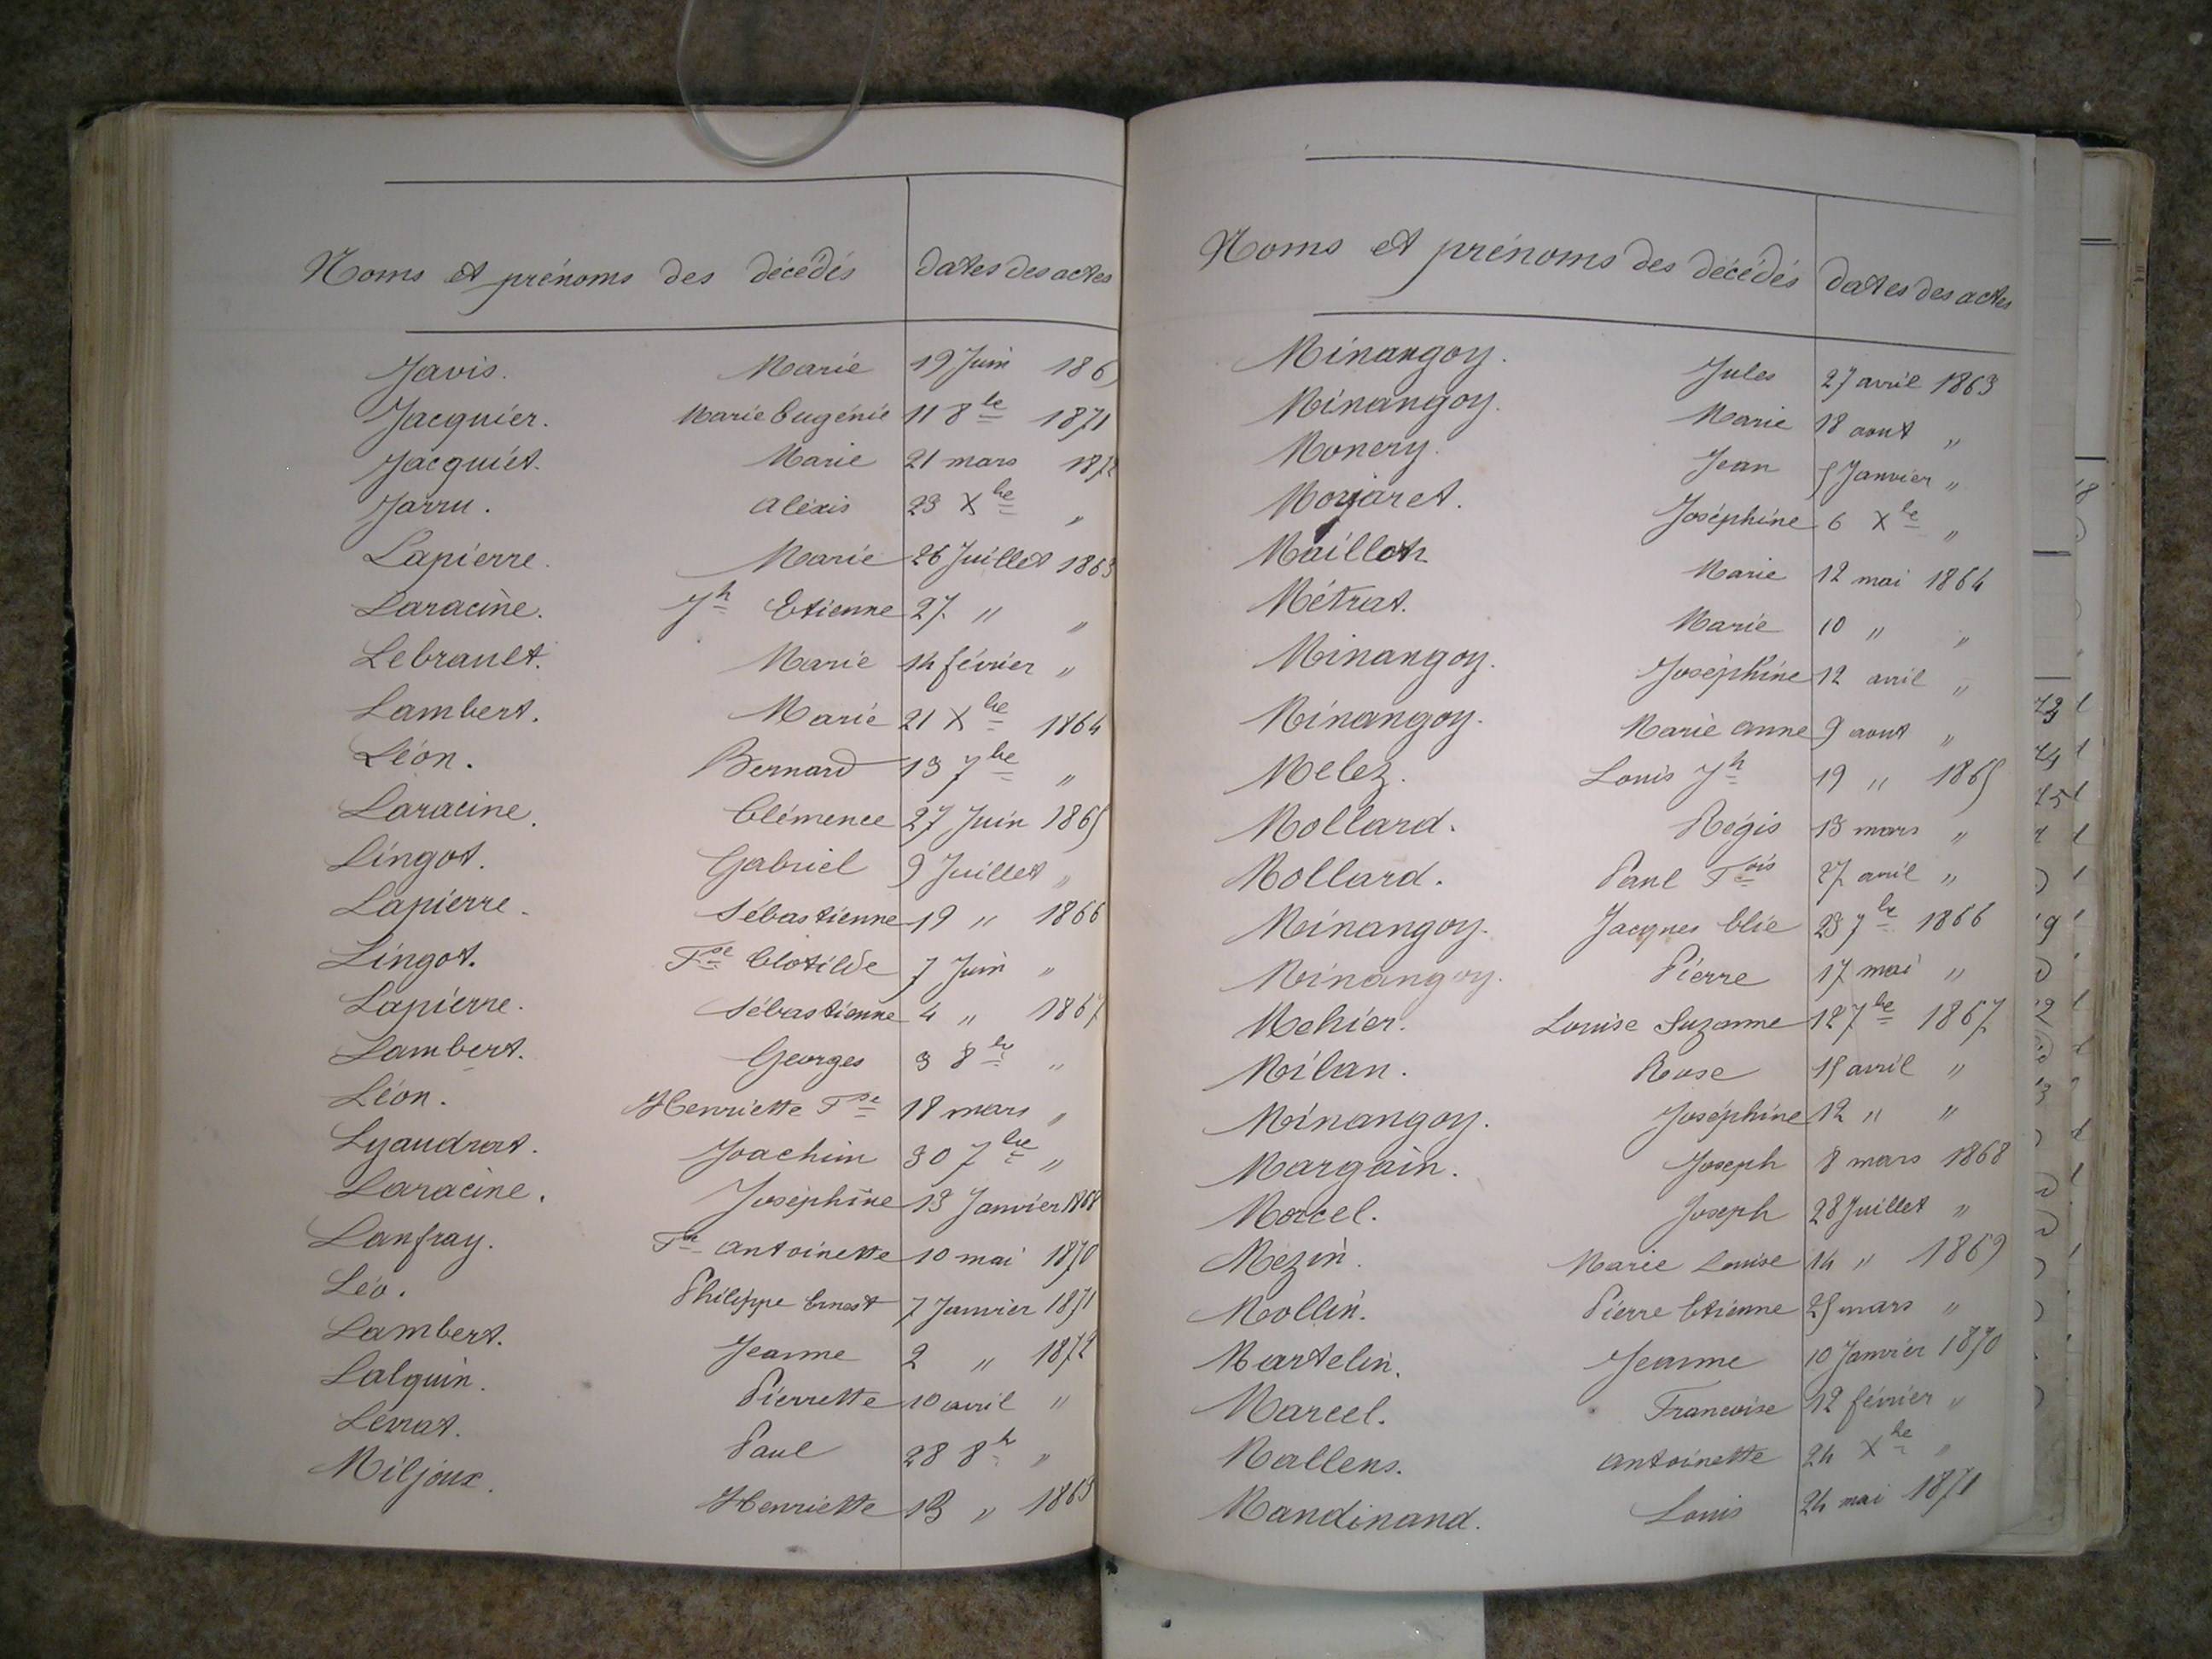 Noms et prénoms des décédés dates des actes
Javis. Marie 19 Juin 186
Jacquier. Marie Eugénie 11 8bre 1871
Jacquiet. Marie 21 mars 1872
Jarru. Alexis 23 Xbre "
Lapierre. Marie 26 Juillet 1863
Laracine. Jh Etienne 27 " "
Lebrault. Marie 14 février "
Lambert. Marie 21 Xbre 1864
Léon. Bernard 13 7bre "
Laracine. Clémence 27 Juin 1865
Lingot. Gabriel 9 Juillet "
Lapierre. Sébastienne 19 " 1866
Lingot. Fse Clotilde 7 Juin "
Lapierre. Sébastienne 4 " 1867
Lambert. Georges 3 8bre "
Léon. Henriette Fse 18 mars "
Lyaudrat. Joachim 30 7bre "
Laracine. Joséphine 13 Janvier 1868
Lanfray. antoinette 10 mai 1870
Léo. Philippe Ernest 7 Janvier 1871
Lambert. Jeanne 2 " 1872
Lalquin. Pierrette 10 avril "
Lérrat. Paul 28 8bre "
Miljoux. Henriette 13 " 1863
Noms et prénoms des décédés dates des actes
Minangoy. Jules 27 avril 1863
Minangoy. Marie 18 aout "
Monery. Jean 5 Janvier "
Morjaret. Joséphine 6 Xbre "
Maillot Marie 12 mai 1864
Métrat. Marie 10 " "
Minangoy. Joséphine 12 avril "
Minangoy. Marie anne 9 aout "
Melez. Louis Jh 19 " 1865
Mollard. Régis 13 mars "
Mollard. Paul Fois 27 avril "
Minangoy. Jacques Elie 23 7bre 1866
Minangoy. Pierre 17 mai "
Mehier. Louise Suzanne 12 7bre 1867
Milan. Rose 15 avril "
Minangoy. Joséphine 12 " "
Margain. Joseph 8 mars 1868
Morcel. Joseph 28 Juillet "
Mezin. Marie Louise 14 " 1869
Mollin. Pierre Etienne 25 mars "
Martelin. Jeanne 10 Janvier 1870
Marcel. Francoise 12 février "
Mallens. antoinette 24 Xbre "
Mandinand. Louis 24 mai 1871